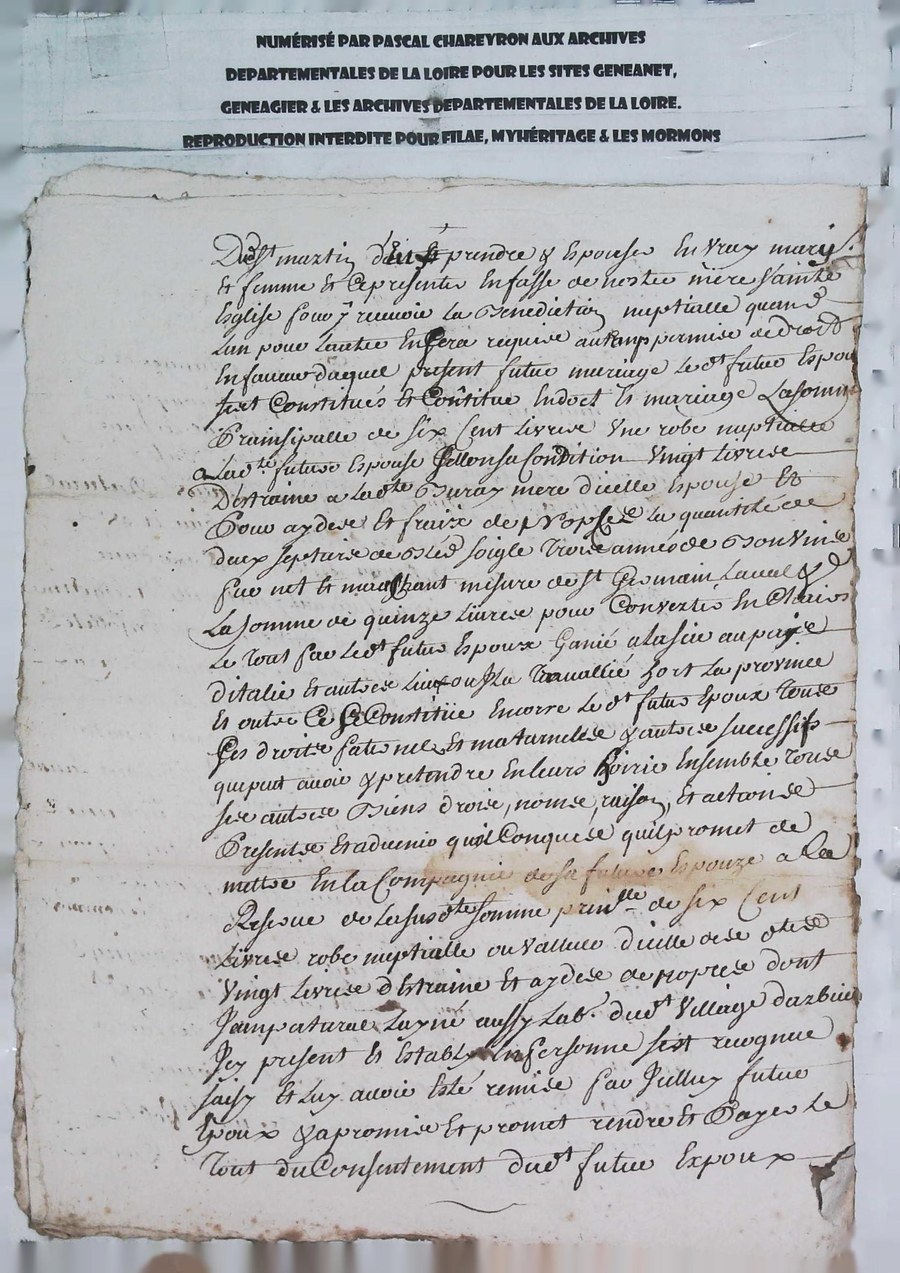 NUMÉRISÉ PAR PASCAL CHAREYRON AUX ARCHIVES
DEPARTEMENTALES DE LA LOIRE POUR LES SITES GENEANET,
GENEAGIER & LES ARCHIVES DEPARTEMENTALES DE LA LOIRE.
REPRODUCTION INTERDITE POUR FILAE, MYHÉRITAGE & LES MORMONS
Dudt St martin prendre & Espouser En vray marys
et femme Et Cepresenter Enfasse de nostre mere Sainte
Esglise pour y recevoir La Benediction nuptialle quand
Lun pour Lautre En sera requise autemps permise de droit
En faveur daquel present futur mariage Ledt futur Espou
sest Constitués Et Constitue En doct Et mariage La somme
Prainsipalle de six Cent Livres Une robe nuptialle
a Ladte future Espouse sellon sa Condition Vingt Livres
D'estraine a Ladte Buray mere dicelle Espouse Et
Pour aydes Et fraix de nopces La quantité de
deux septiers de Bled soigle Trois annés de Bon Vin
pur net Et marchant mesure de St Germain Laval &
La somme de quinze Livres pour Convertir En Chairs
Le Tout par Ledt futur Espoux Ganié a la sie au païs
d'italie Et autres Lieux ou Il a Travallié hort La province
Et outre Ce se Constitue Encorre Ledt futur Epoux Tous
ses droits paternels Et maternelse & autres successifs
qui peut avoir & pretendre En leurs hoirie Ensemble Tous
ses autres Biens drois, noms, raison, Et actions
Presents Et advenir quelConques quil promet de
mettre En la Compagnie de sa future Espouze a La
Reserve de La susdte somme prinlle de six Cent
Livres robe nuptialle ou valleur dicelle
Vingt Livres d'Estraine Et aydes de nopces dont
Layné aussy Labr dudt Village
Icy present Et Estably En Personne sest recognue
saisy Et Luy avoir Esté remise par Icelluy futur
Epoux & a promis Et promet rendre Et Payer Le
Tout du Consentement dudt futur Expoux